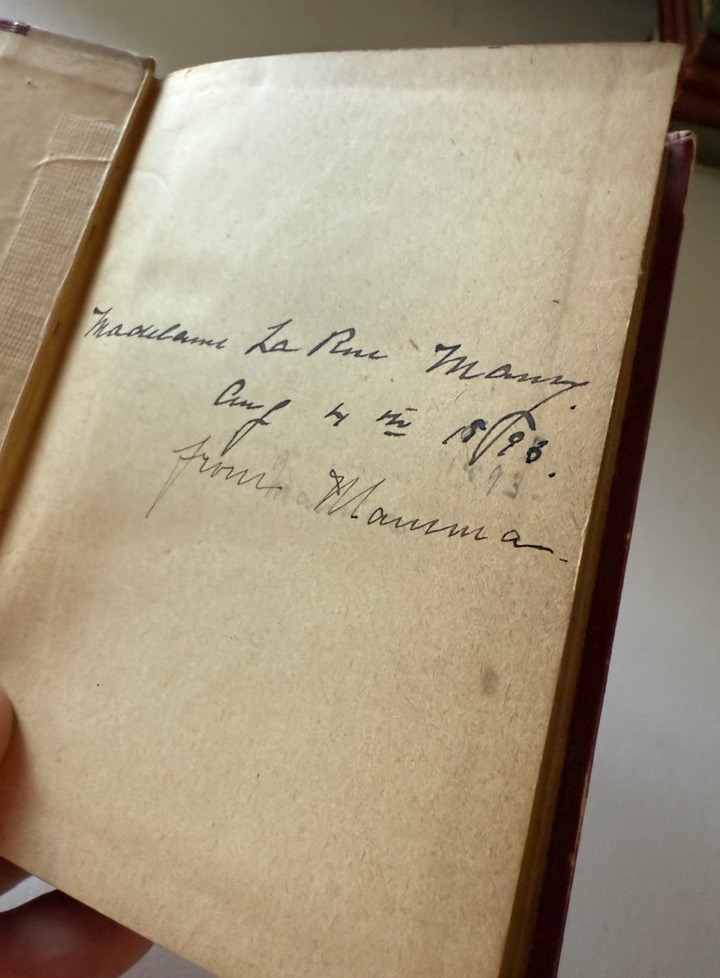 Madelaine La Rue Many.
Aug 4th 1893.
from Mamma.